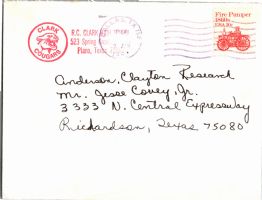 CLARK
COUGARS
R.C. CLARK
523 Spring
Plano, Texas
Fire Pumper
1860s
USA 20c
Anderson, Clayton Research
Mr. Jesse Covey, Jr.
3333 N. Central Expressway
Richardson, Texas 75080